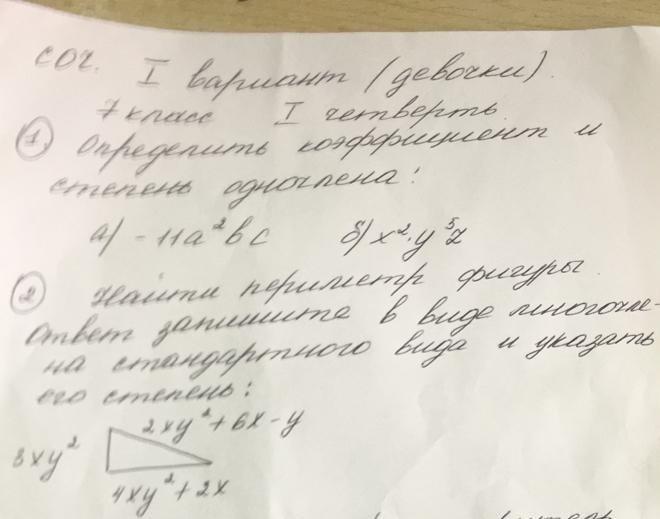 СОЧ. I вариант (девочки).
7 класс I четверть.
① Определить коэффициент и
степень одночлена:
а) -11a²bc б) x²·y⁵z
② Найти периметр фигуры.
Ответ запишите в виде многочле-
на стандартного вида и указать
его степень:
2xy²+6x-y
3xy²
4xy²+2x